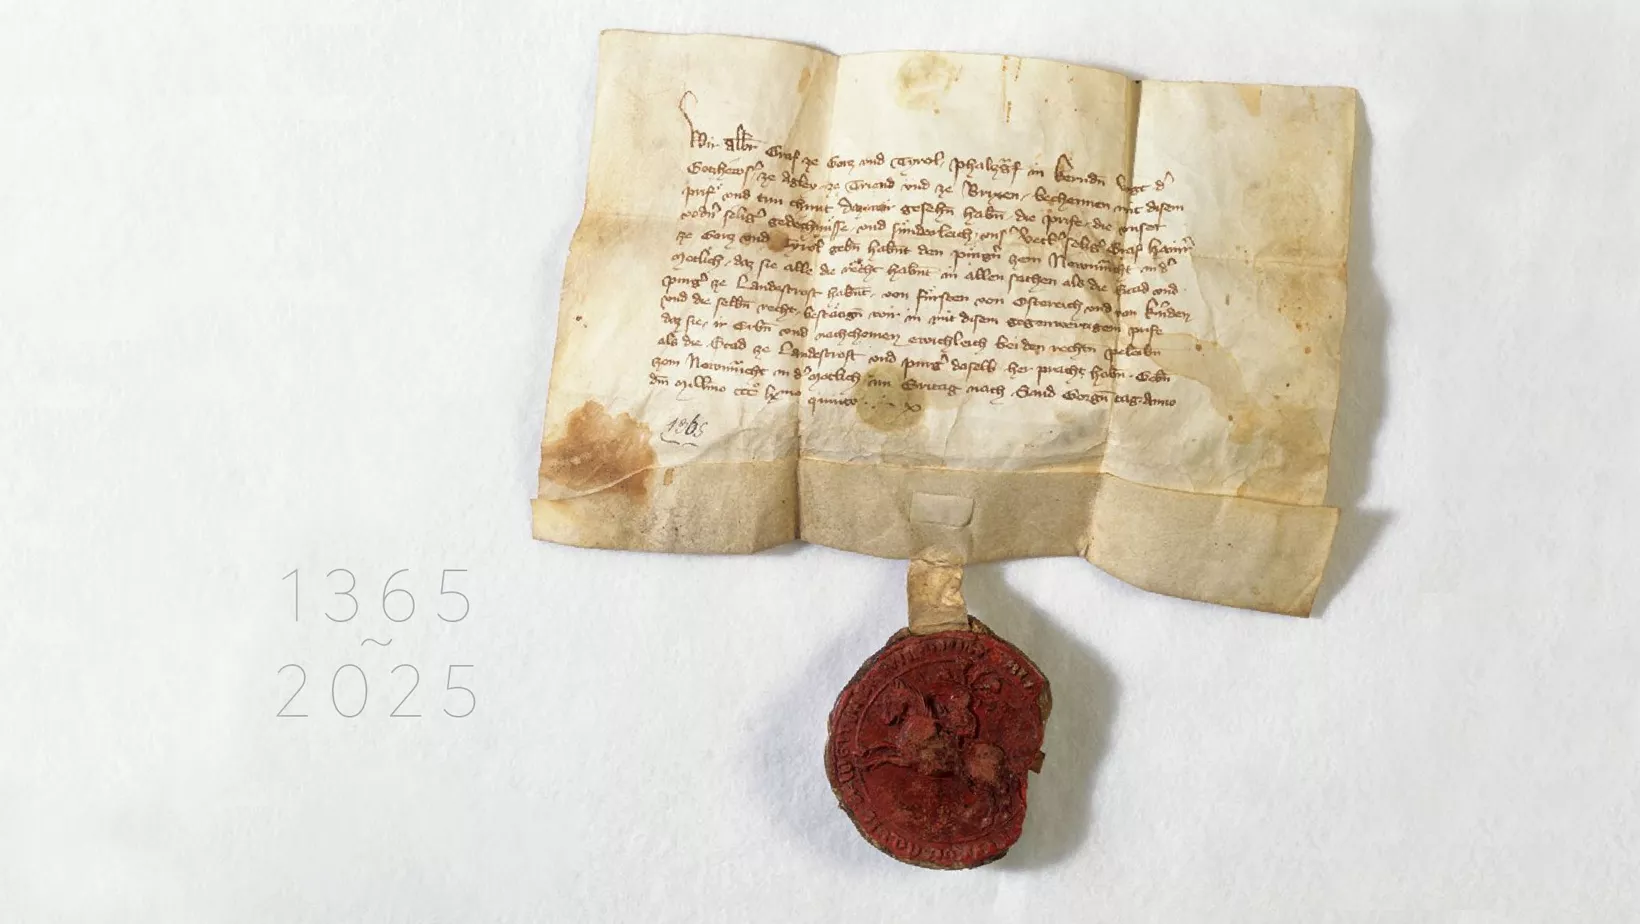 Wir albr Graf ze Gorz und Tyrol, phalzgraf in kernden Vogt d
Gotzhewsr ze Agley ze Triend und ze Brixen, bechennen mit disem
prif und tun chunt daz wir gesehn habn die prife, die unser
vodn selig gedechnüsse, und sunderleich uns vetr selig Graf hainr
ze Gorz und Tyrol gebn habnt den purgn zem Newnmarcht in d
Metlich, daz sie alle die recht habnt in allen sachen als die Stad und
purgr ze Landestrost habnt, von fürsten von Ostereich und von kernden
und die selbn recht, bestätign wir in mit disem gegenwürtigem prife
daz sie, ir Erbn und nachchomen ewichleich bei den rechtn peleibn
als die Stad ze Landestrost und purgr daselb her pracht habn. Gebn
zem Newnmarcht in d Metlich an Eritag nach Sand Gorgn tag. Anno
dm Millmo ccc lxmo quinto
1365
1365
~
2025